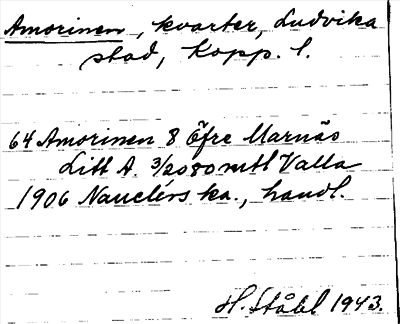 Amorinen, kvarter, Ludvika
stad, Kopp. l.
64 Amorinen 8 Öfre Marnäs
Litt A 3/2080 mtl Valla
1906 Nauclérs ka., handl.
H. Ståhl 1943